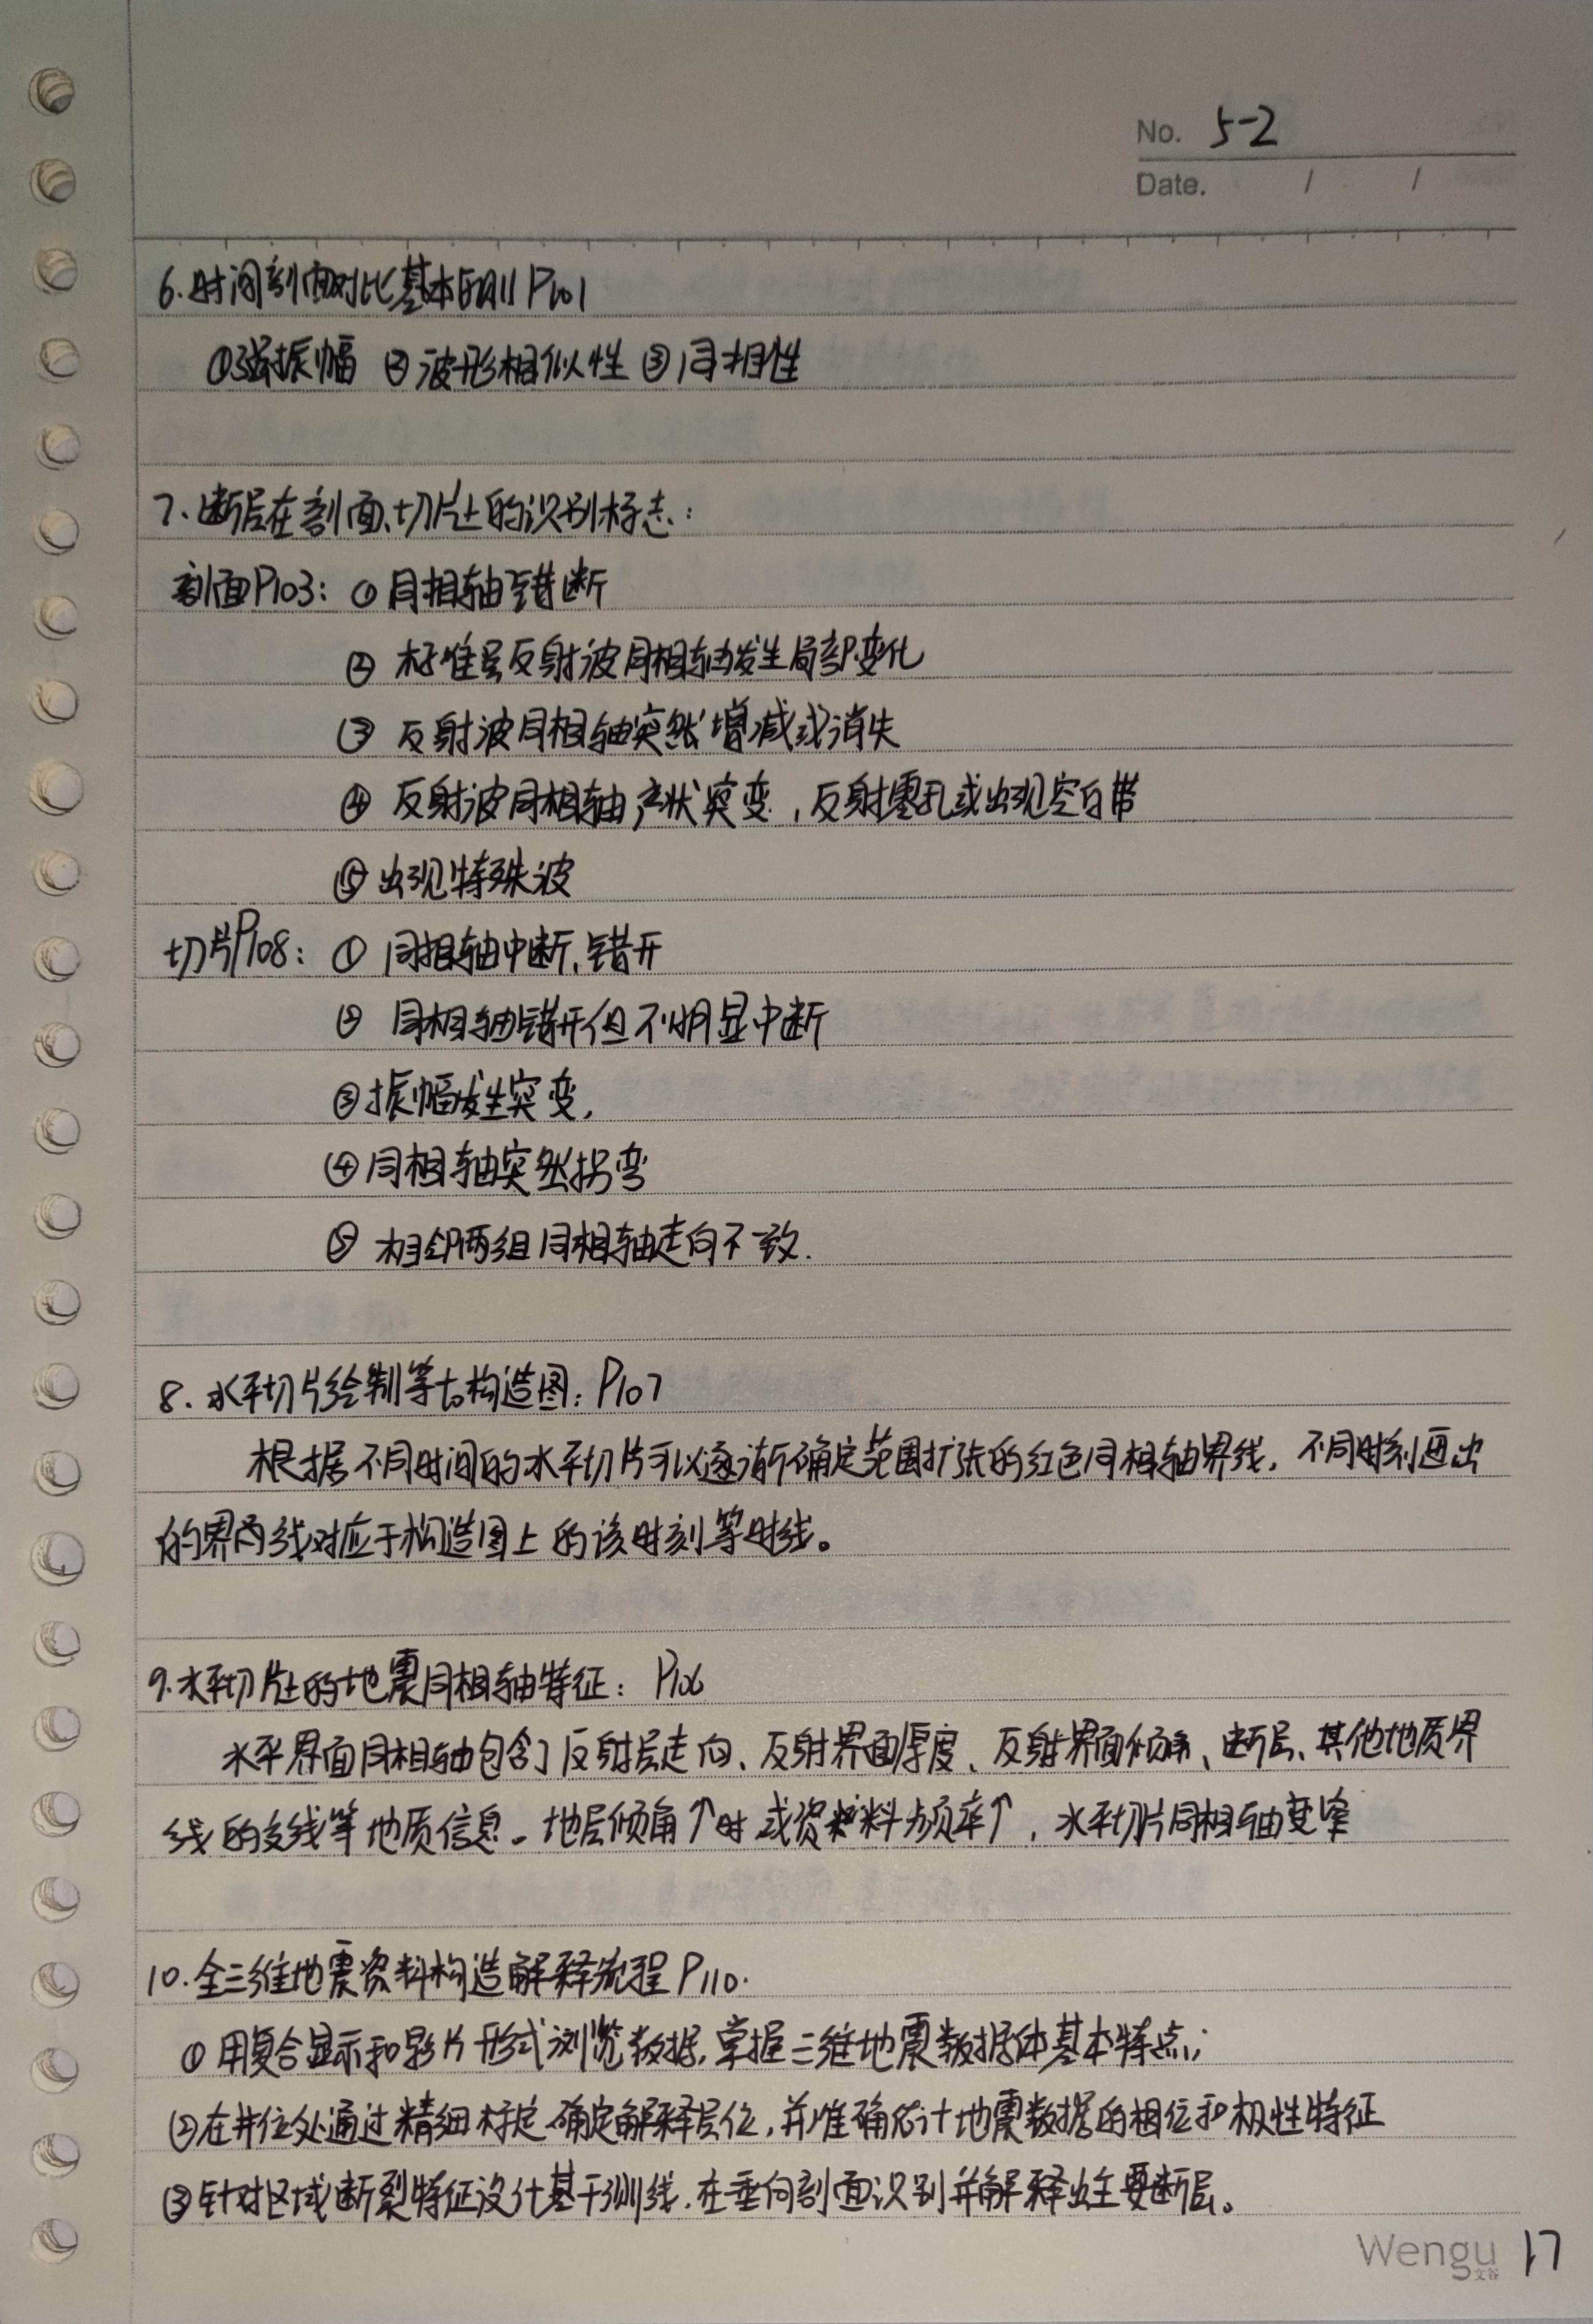 No. 5-2
Date. / /
6.时间剖面对比基本原则 P101
①强振幅 ②波形相似性 ③同相性
7.断层在剖面、切片上的识别标志:
剖面P103: ①同相轴错断
② 标准层反射波同相轴发生局部变化
③ 反射波同相轴突然增减或消失
④ 反射波同相轴产状突变,反射零乱或出现空白带
⑤ 出现特殊波
切片P108: ① 同相轴中断、错开
② 同相轴错开但不明显中断
③振幅发生突变,
④同相轴突然拐弯
⑤ 相邻两组同相轴走向不一致.
8.水平切片绘制等t0构造图: P107
根据不同时间的水平切片可以逐渐确定范围扩张的红色同相轴界线,不同时刻画出
的界线对应于构造图上的该时刻等时线。
9.水平切片上的地震同相轴特征: P106
水平界面同相轴包含了反射层走向、反射界面厚度、反射界面倾角、断层、其他地质界
线的交线等地质信息。地层倾角↑时或资料频率↑,水平切片同相轴变窄
10.全三维地震资料构造解释流程 P110.
①用复合显示和影片形式浏览数据,掌握三维地震数据体基本特点;
②在井位处通过精细标定确定解释层位,并准确估计地震数据的相位和极性特征
③针对区域断裂特征设计基干测线.在垂向剖面识别并解释出主要断层。
Wengu 文谷 17